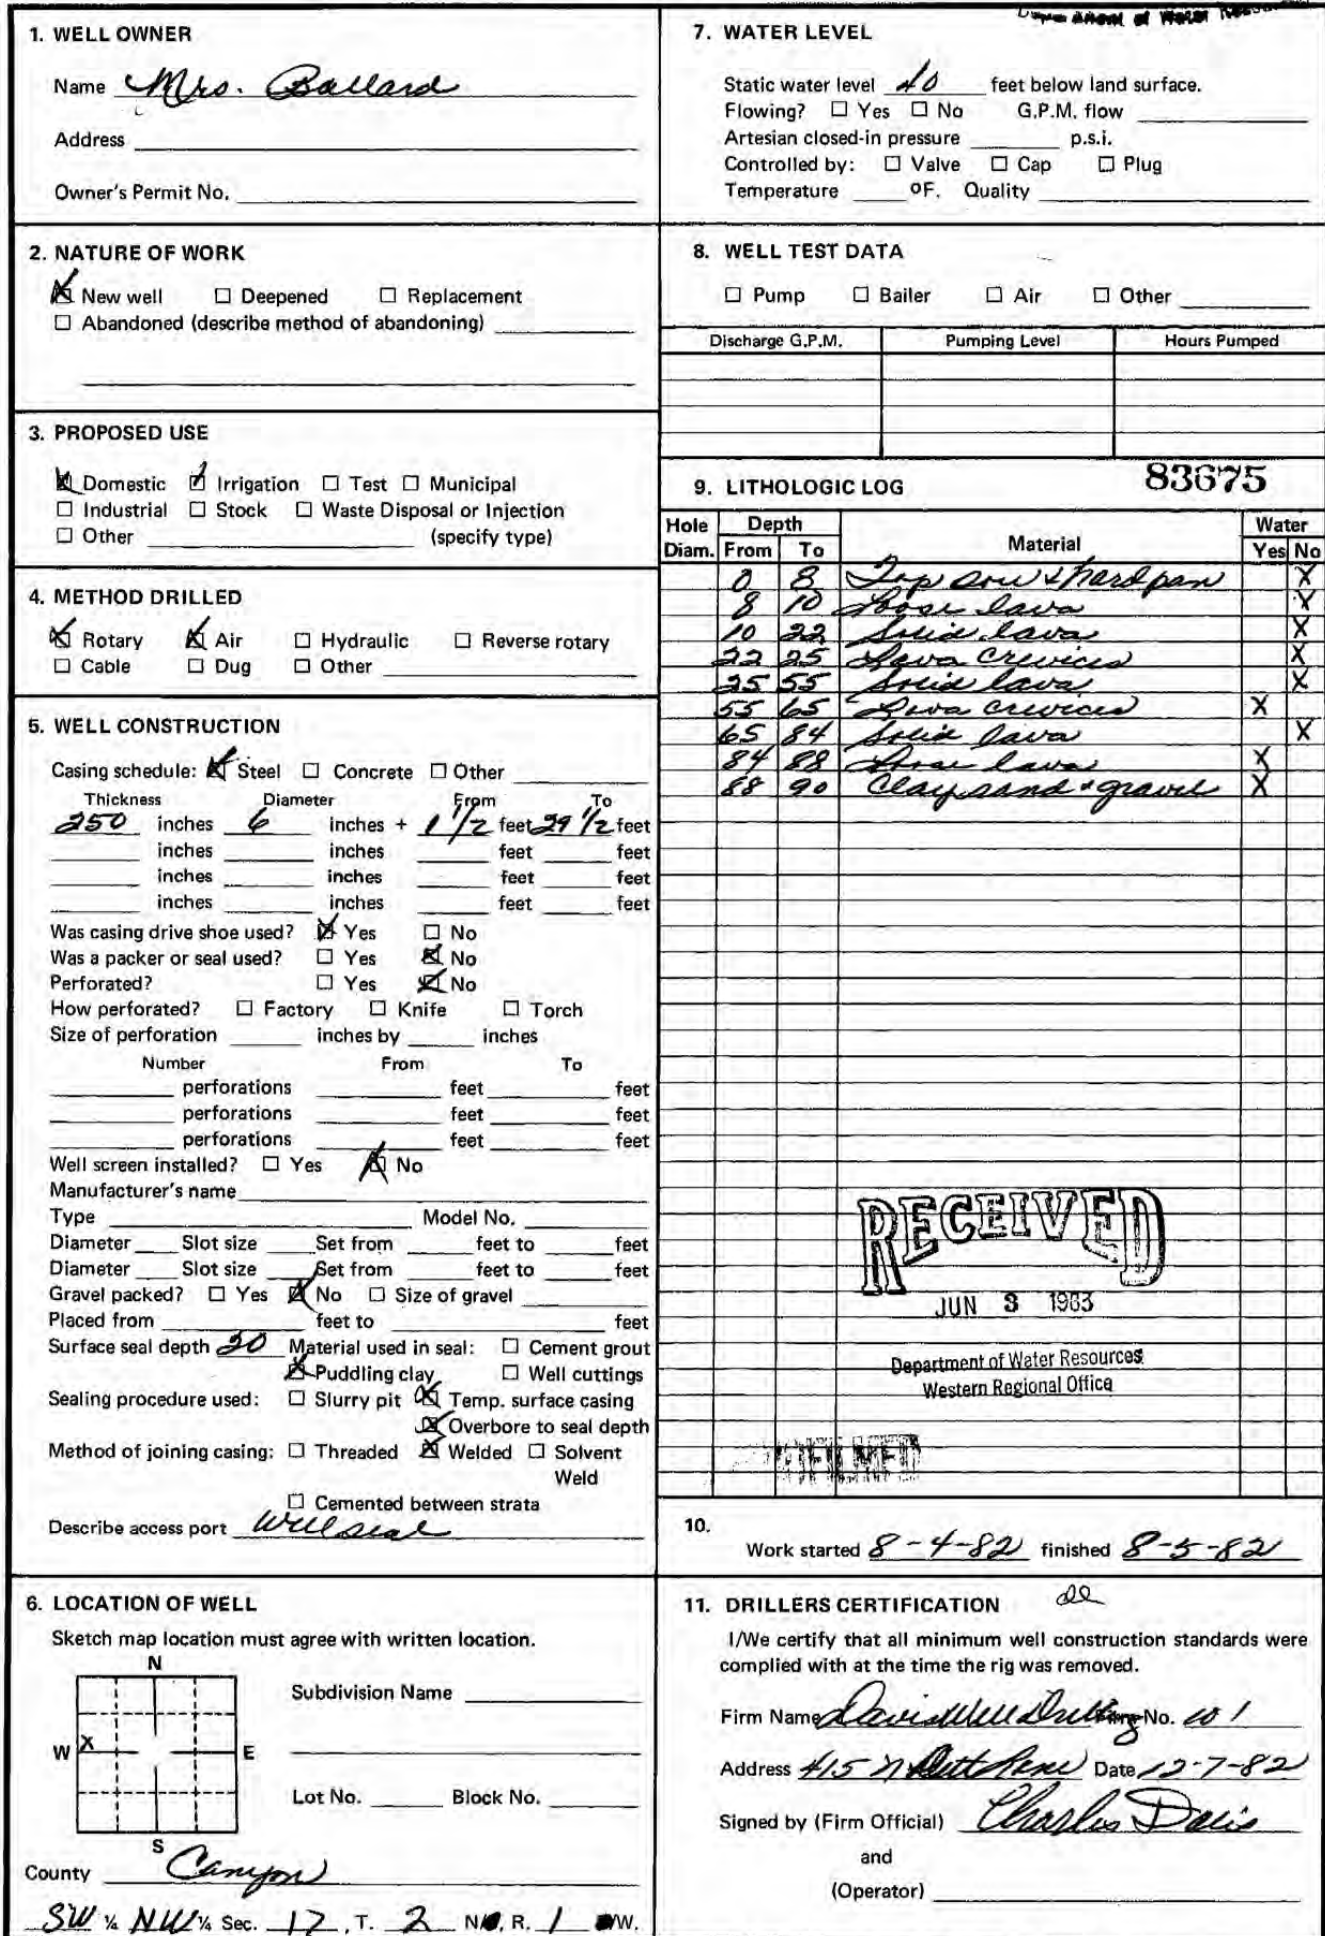 Department of Water Resources
1. WELL OWNER
Name Mrs. Ballard
Address
Owner's Permit No.
2. NATURE OF WORK
☒ New well ☐ Deepened ☐ Replacement
☐ Abandoned (describe method of abandoning)
3. PROPOSED USE
☒ Domestic ☒ Irrigation ☐ Test ☐ Municipal
☐ Industrial ☐ Stock ☐ Waste Disposal or Injection
☐ Other (specify type)
4. METHOD DRILLED
☒ Rotary ☒ Air ☐ Hydraulic ☐ Reverse rotary
☐ Cable ☐ Dug ☐ Other
5. WELL CONSTRUCTION
Casing schedule: ☒ Steel ☐ Concrete ☐ Other
Thickness Diameter From To
250 inches 6 inches + 1 1/2 feet 29 1/2 feet
inches inches feet feet
inches inches feet feet
inches inches feet feet
Was casing drive shoe used? ☒ Yes ☐ No
Was a packer or seal used? ☐ Yes ☒ No
Perforated? ☐ Yes ☒ No
How perforated? ☐ Factory ☐ Knife ☐ Torch
Size of perforation inches by inches
Number From To
perforations feet feet
perforations feet feet
perforations feet feet
Well screen installed? ☐ Yes ☒ No
Manufacturer's name
Type Model No.
Diameter Slot size Set from feet to feet
Diameter Slot size Set from feet to feet
Gravel packed? ☐ Yes ☒ No ☐ Size of gravel
Placed from feet to feet
Surface seal depth Material used in seal: ☐ Cement grout
☒ Puddling clay ☐ Well cuttings
Sealing procedure used: ☐ Slurry pit ☒ Temp. surface casing
☒ Overbore to seal depth
Method of joining casing: ☐ Threaded ☒ Welded ☐ Solvent
Weld
☐ Cemented between strata
Describe access port Well seal
6. LOCATION OF WELL
Sketch map location must agree with written location.
N
Subdivision Name
W X E
Lot No. Block No.
S
County Canyon
SW ¼ NW ¼ Sec. 17, T. 2 N, R. 1 W.
7. WATER LEVEL
Static water level 40 feet below land surface.
Flowing? ☐ Yes ☐ No G.P.M. flow
Artesian closed-in pressure p.s.i.
Controlled by: ☐ Valve ☐ Cap ☐ Plug
Temperature ºF. Quality
8. WELL TEST DATA
☐ Pump ☐ Bailer ☐ Air ☐ Other
Discharge G.P.M. Pumping Level Hours Pumped
9. LITHOLOGIC LOG 83675
Hole Depth Water
Diam. From To Material Yes No
0 8 Top soil & hard pan X
8 10 Loose lava X
10 22 Solid lava X
22 25 Lava crevices X
25 55 Solid lava X
55 65 Lava crevices X
65 84 Solid lava X
84 88 Loose lava X
88 90 Clay sand & gravel X
RECEIVED
JUN 3 1983
Department of Water Resources
Western Regional Office
10.
Work started 8-4-82 finished 8-5-82
11. DRILLERS CERTIFICATION
I/We certify that all minimum well construction standards were
complied with at the time the rig was removed.
Firm Name Davis Well Drilling Firm No. 1
Address 415 N Date 12-7-82
Signed by (Firm Official) Charles Davis
and
(Operator)